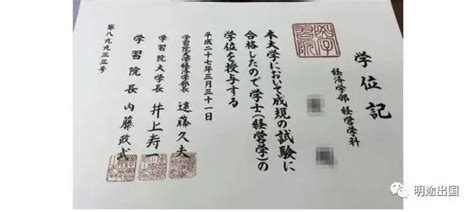 学位記
経済学部 経営学科
本大学において成規の試験に
合格したので学士(経営学)の
学位を授与する
平成二十七年三月三十一日
学習院大学経済学部長 遠藤久夫
学習院大学長 井上寿一
学習院長 内藤政武
第八九九三三号
明途出国